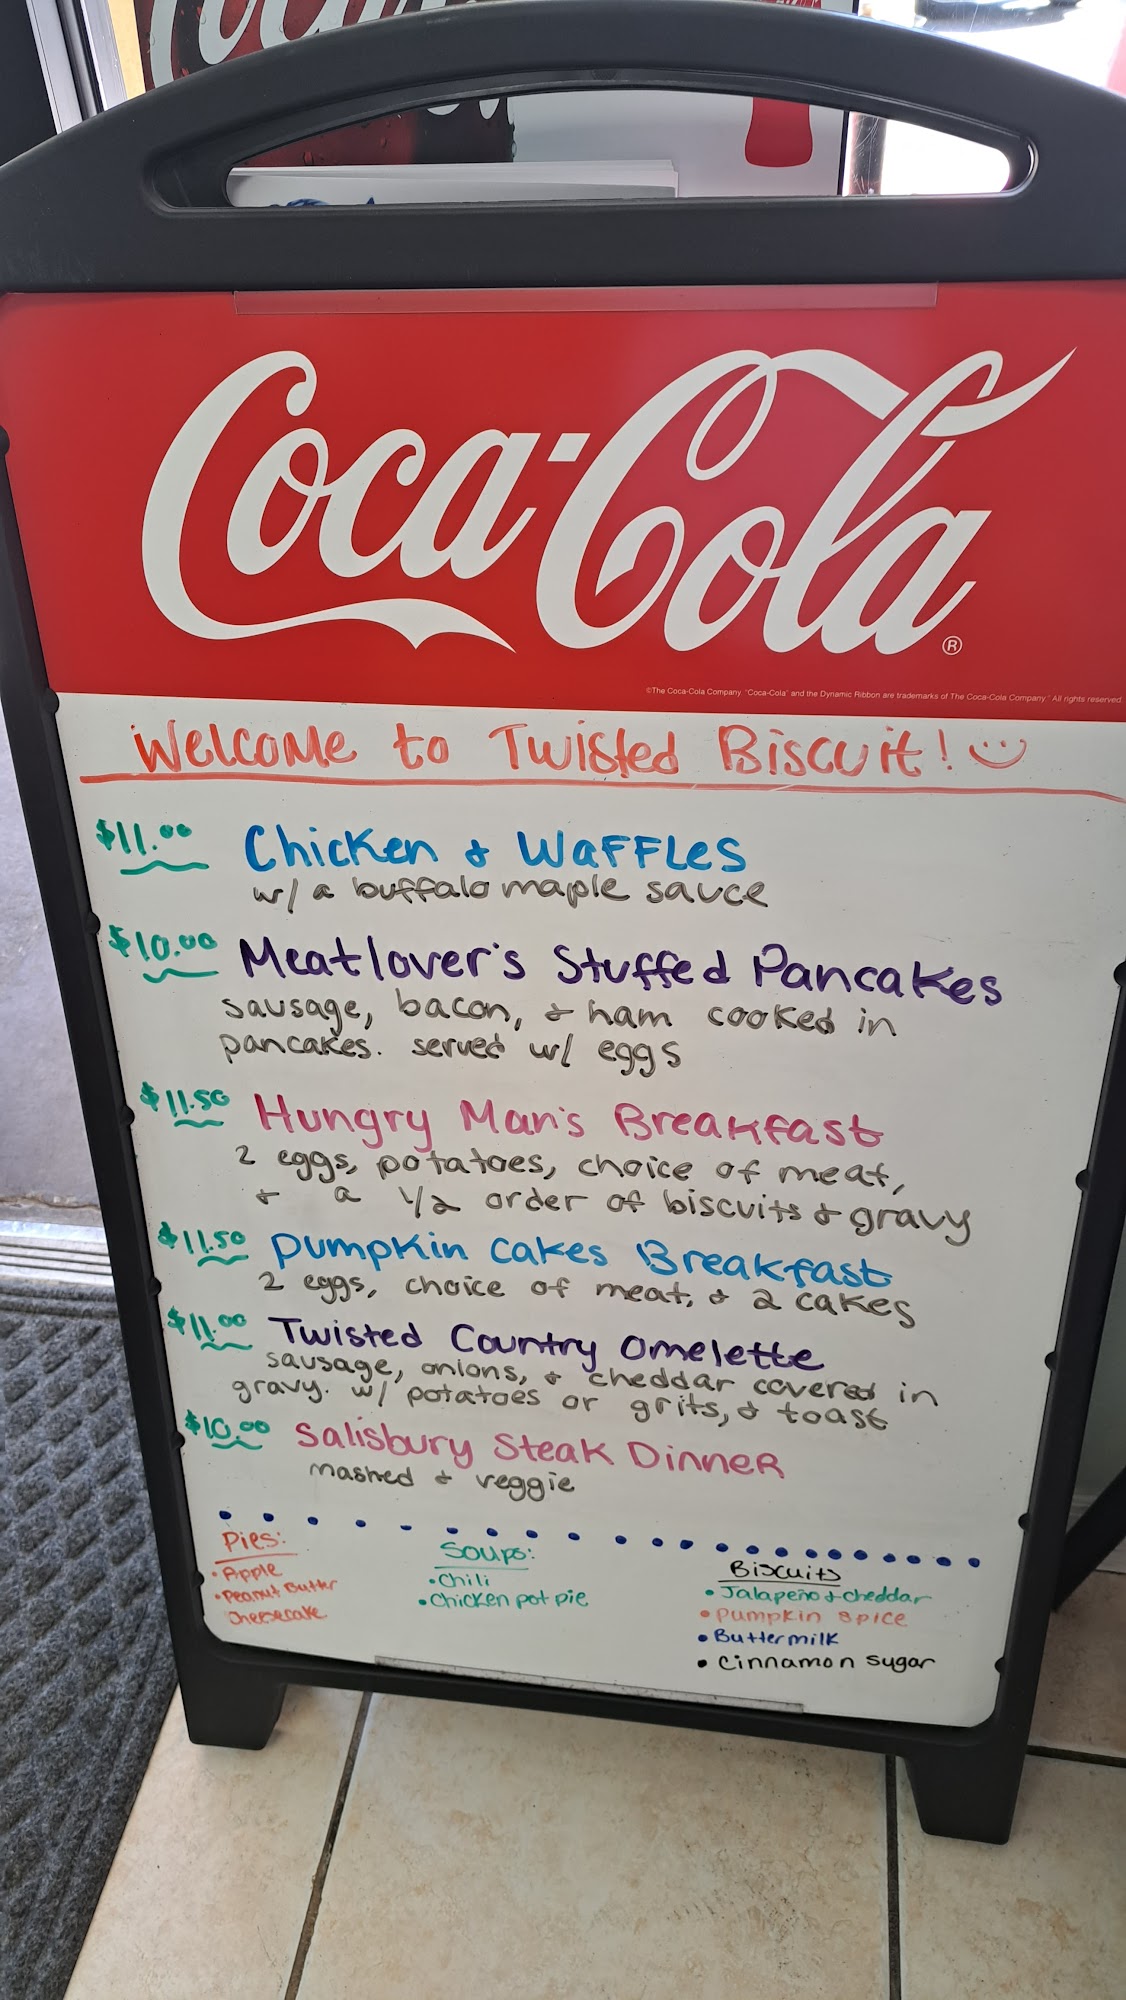 Coca-Cola
®
©The Coca-Cola Company. "Coca-Cola" and the Dynamic Ribbon are trademarks of The Coca-Cola Company. All rights reserved.
Welcome to Twisted Biscuit!
$11.00 Chicken & Waffles
w/ a buffalo maple sauce
$10.00 Meatlover's Stuffed Pancakes
sausage, bacon, & ham cooked in
pancakes. served w/ eggs
$11.50 Hungry Man's Breakfast
2 eggs, potatoes, choice of meat,
& a 1/2 order of biscuits & gravy
$11.50 pumpkin cakes Breakfast
2 eggs, choice of meat, & 2 cakes
$11.00 Twisted Country Omelette
sausage, onions, & cheddar covered in
gravy. w/ potatoes or grits, & toast
$10.00 Salisbury Steak Dinner
mashed & veggie
Pies:
• Apple
• Peanut Butter
Cheesecake
Soups:
• Chili
• Chicken pot pie
Biscuits
• Jalapeño & cheddar
• Pumpkin spice
• Buttermilk
• Cinnamon sugar